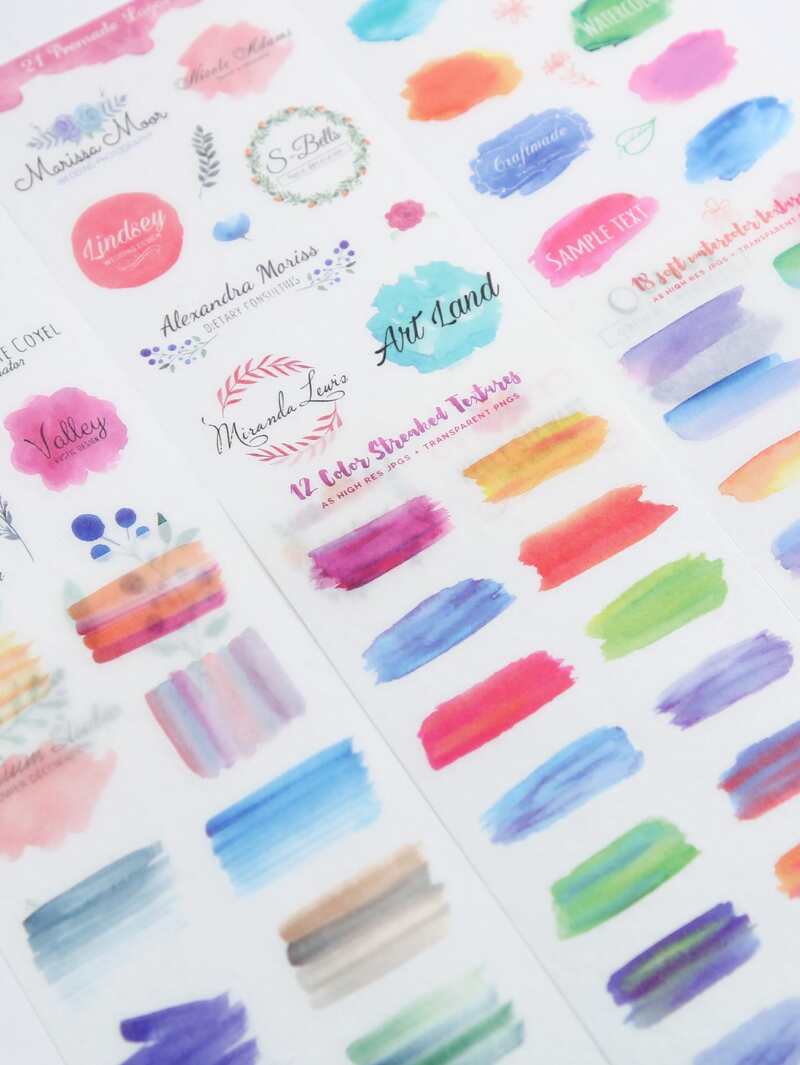 21 Premade Logos
Nicole Adams
Marissa Moor
WEDDING PHOTOGRAPHY
S-Bells
Lindsey
Alexandra Moriss
DIETARY CONSULTING
Art Land
Miranda Lewis
Valley
12 Color Streaked Textures
AS HIGH RES JPGS + TRANSPARENT PNGS
WATERCOLOR
Craftmade
SAMPLE TEXT
18 soft watercolor textures
AS HIGH RES JPGS + TRANSPARENT